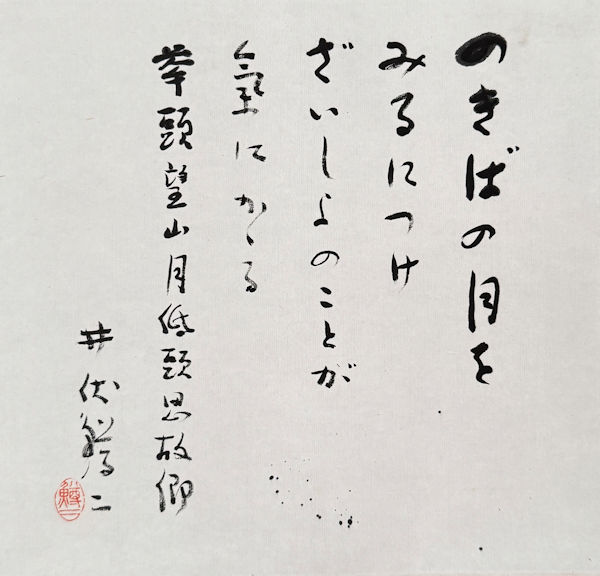 のきばの月を
みるにつけ
ざいしよのことが
氣にかゝる
挙頭望山月低頭思故郷
井伏鱒二
鱒二